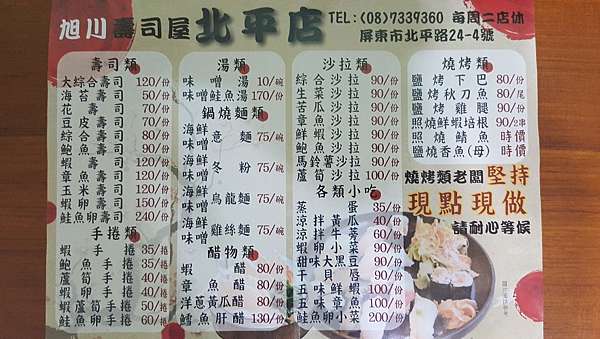 旭川壽司屋北平店
TEL:(08)7339360 每周二店休
屏東市北平路24-4號
壽司類
大綜合壽司 120/份
海苔壽司 50/份
花壽司 70/份
豆皮壽司 70/份
綜合壽司 80/份
鮑魚壽司 90/份
蝦壽司 120/份
章魚壽司 120/份
玉米壽司 120/份
蝦卵壽司 150/份
鮭魚卵壽司 240/份
手捲類
蝦手捲 35/捲
鮑魚手捲 35/捲
蘆筍手捲 40/捲
蝦卵手捲 50/捲
鮭魚卵手捲 60/捲
湯類
味噌湯 10/碗
味噌鮭魚湯 170/份
鍋燒麵類
海鮮味噌 意麵 75/碗
海鮮味噌 冬粉 75/碗
海鮮味噌 烏龍麵 75/碗
海鮮味噌 雞絲麵 75/碗
醋物類
蝦醋 80/份
章魚醋 80/份
洋蔥黃瓜醋 80/份
鱈魚肝醋 130/份
沙拉類
綜合沙拉 90/份
生菜沙拉 90/份
苦瓜沙拉 90/份
章魚沙拉 90/份
鮮蝦沙拉 90/份
鮑魚沙拉 90/份
馬鈴薯沙拉 90/份
蘆筍沙拉 100/份
各類小吃
蒸蛋 35/份
涼拌黃瓜 40/份
涼拌蕎
蝦卵小菜
甜味大黑豆
干貝唇
五味鮮蝦 100/份
五味章魚 100/份
鮭魚卵小菜 200/份
燒烤類
鹽烤下巴 80/份
鹽烤秋刀魚 80/尾
鹽烤雞腿 90/份
照燒鮮蝦培根 90/2串
照燒鯖魚 時價
鹽燒香魚(母) 時價
燒烤類老闆堅持
現點現做
請耐心等候